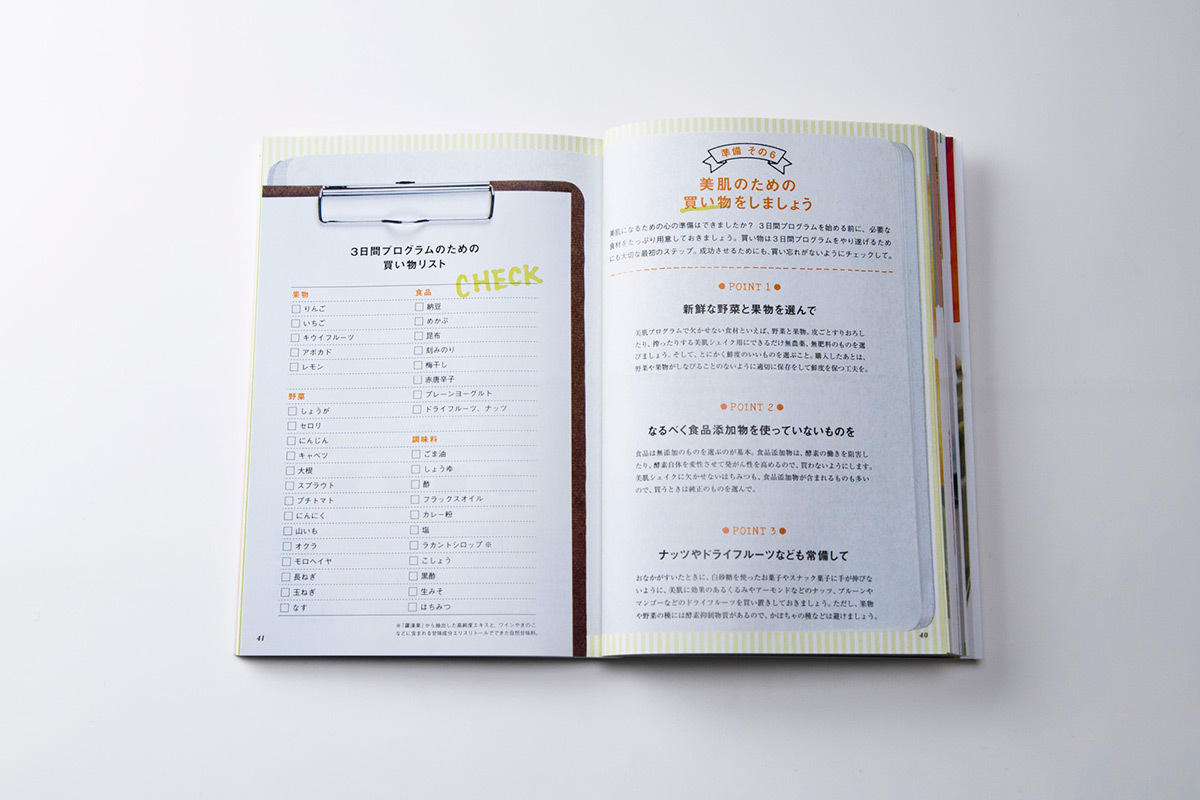 準備 その6
美肌のための
買い物をしましょう
美肌になるための心の準備はできましたか? 3日間プログラムを始める前に、必要な
食材をたっぷり用意しておきましょう。買い物は3日間プログラムをやり遂げるため
にも大切な最初のステップ。成功させるためにも、買い忘れがないようにチェックして。
POINT 1
新鮮な野菜と果物を選んで
美肌プログラムで欠かせない食材といえば、野菜と果物。皮ごとすりおろし
たり、搾ったりする美肌シェイク用にできるだけ無農薬、無肥料のものを選
びましょう。そして、とにかく鮮度のいいものを選ぶこと。購入したあとは、
野菜や果物がしなびることのないように適切に保存をして鮮度を保つ工夫を。
POINT 2
なるべく食品添加物を使っていないものを
食品は無添加のものを選ぶのが基本。食品添加物は、酵素の働きを阻害し
たり、酵素自体を変性させて発がん性を高めるので、買わないようにします。
美肌シェイクに欠かせないはちみつも、食品添加物が含まれるものも多い
ので、買うときは純正のものを選んで。
POINT 3
ナッツやドライフルーツなども常備して
おなかがすいたときに、白砂糖を使ったお菓子やスナック菓子に手が伸びな
いように、美肌に効果のあるくるみやアーモンドなどのナッツ、プルーンや
マンゴーなどのドライフルーツを買い置きしておきましょう。ただし、果物
や野菜の種には酵素抑制物質があるので、かぼちゃの種などは避けましょう。
40
3日間プログラムのための
買い物リスト
CHECK
果物
りんご
いちご
キウイフルーツ
アボカド
レモン
野菜
しょうが
セロリ
にんじん
キャベツ
大根
スプラウト
プチトマト
にんにく
山いも
オクラ
モロヘイヤ
長ねぎ
玉ねぎ
なす
食品
納豆
めかぶ
昆布
刻みのり
梅干し
赤唐辛子
プレーンヨーグルト
ドライフルーツ、ナッツ
調味料
ごま油
しょうゆ
酢
フラックスオイル
カレー粉
塩
ラカントシロップ ※
こしょう
黒酢
生みそ
はちみつ
※「羅漢果」から抽出した高純度エキスと、ワインやきのこ
などに含まれる甘味成分エリスリトールでできた自然甘味料。
41